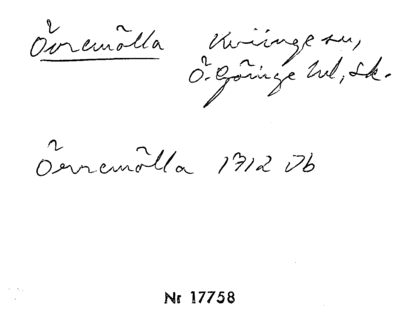 Övremölla Kviinge sn,
Ö. Göinge hd, Sk.
Övremölla 1712 Db
Nr 17758